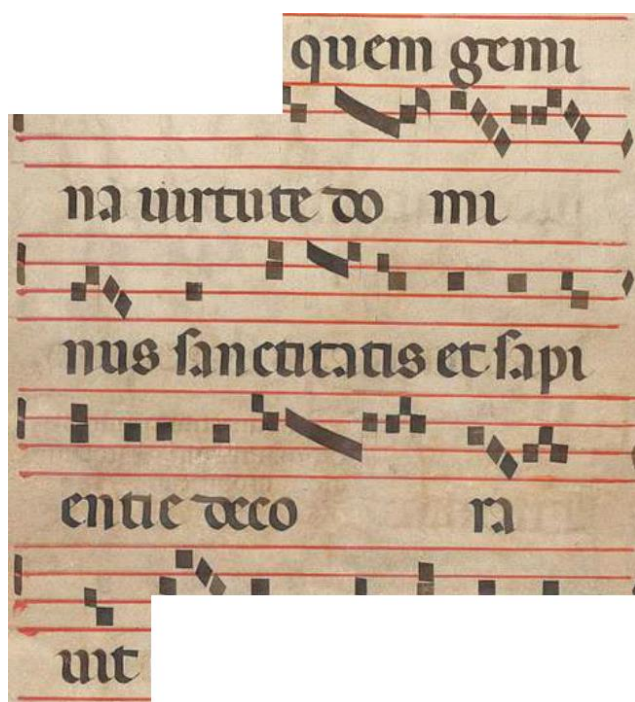 quem gemi
na uirtute do mi
nus sanctitatis et sapi
entie deco ra
uit